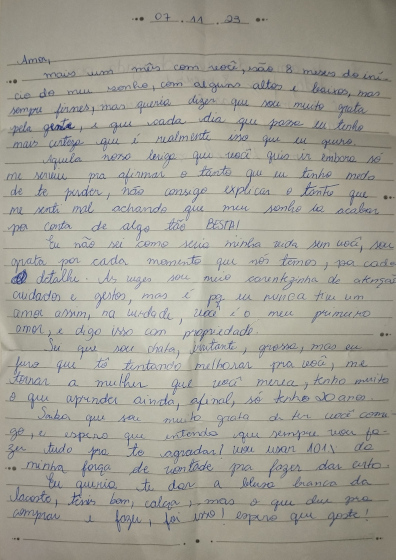 07 11 23
Amor,
mais um mês com você, são 8 meses do iní-
cio do meu sonho, com alguns altos e baixos, mas
sempre firmes, mas queria dizer que sou muito grata
pela gente, e que cada dia que passa eu tenho
mais certeza que é realmente isso que eu quero.
Aquela nossa briga que você quis ir embora só
me serviu pra afirmar o tanto que eu tenho medo
de te perder, não consigo explicar o tanto que
me senti mal achando que meu sonho ia acabar
por conta de algo tão BESTA!
Eu não sei como seria minha vida sem você, sou
grata por cada momento que nós temos, por cada
detalhe. As vezes sou meio carentezinha de atenção
cuidados e gestos, mas é pq eu nunca tive um
amor assim, na verdade, você é o meu primeiro
amor, e digo isso com propriedade.
Sei que sou chata, irritante, grossa, mas eu
juro que tô tentando melhorar pra você, me
tornar a mulher que você merece, tenho muito
o que aprender ainda, afinal, só tenho 20 anos.
Saiba que sou muito grata de ter você comi-
go, e espero que entenda que sempre vou fa-
zer tudo pra te agradar! vou usar 101% da
minha força de vontade pra fazer dar certo.
Eu queria te dar a blusa branca da
Lacoste, tênis bom, calça, mas o que deu pra
comprar e fazer, foi isso! espero que goste!